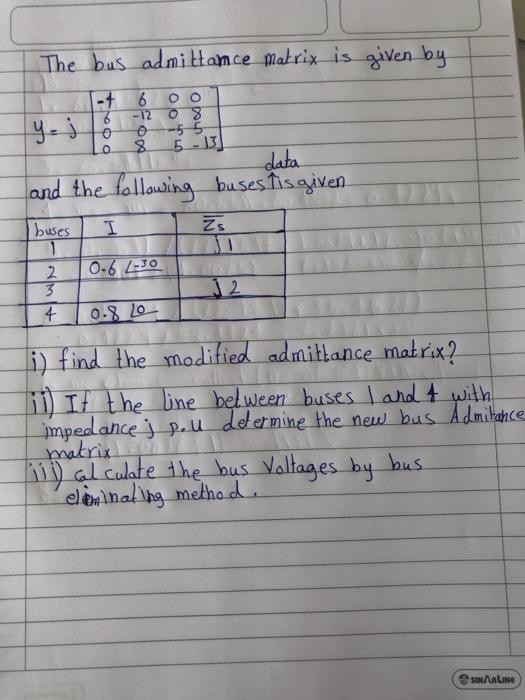 The bus admittance matrix is given by
y = j [-4 6 0 0
6 -12 0 8
0 0 -5 5
0 8 5 -13]
data
and the following buses is given
buses I Z̅s
1 j1
2 0.6 ∠-30
3 j2
4 0.8 ∠0
i) find the modified admittance matrix?
ii) If the line between buses 1 and 4 with
impedance j p.u determine the new bus Admitance
matrix
iii) calculate the bus Voltages by bus
eliminating method.
SINARLINE